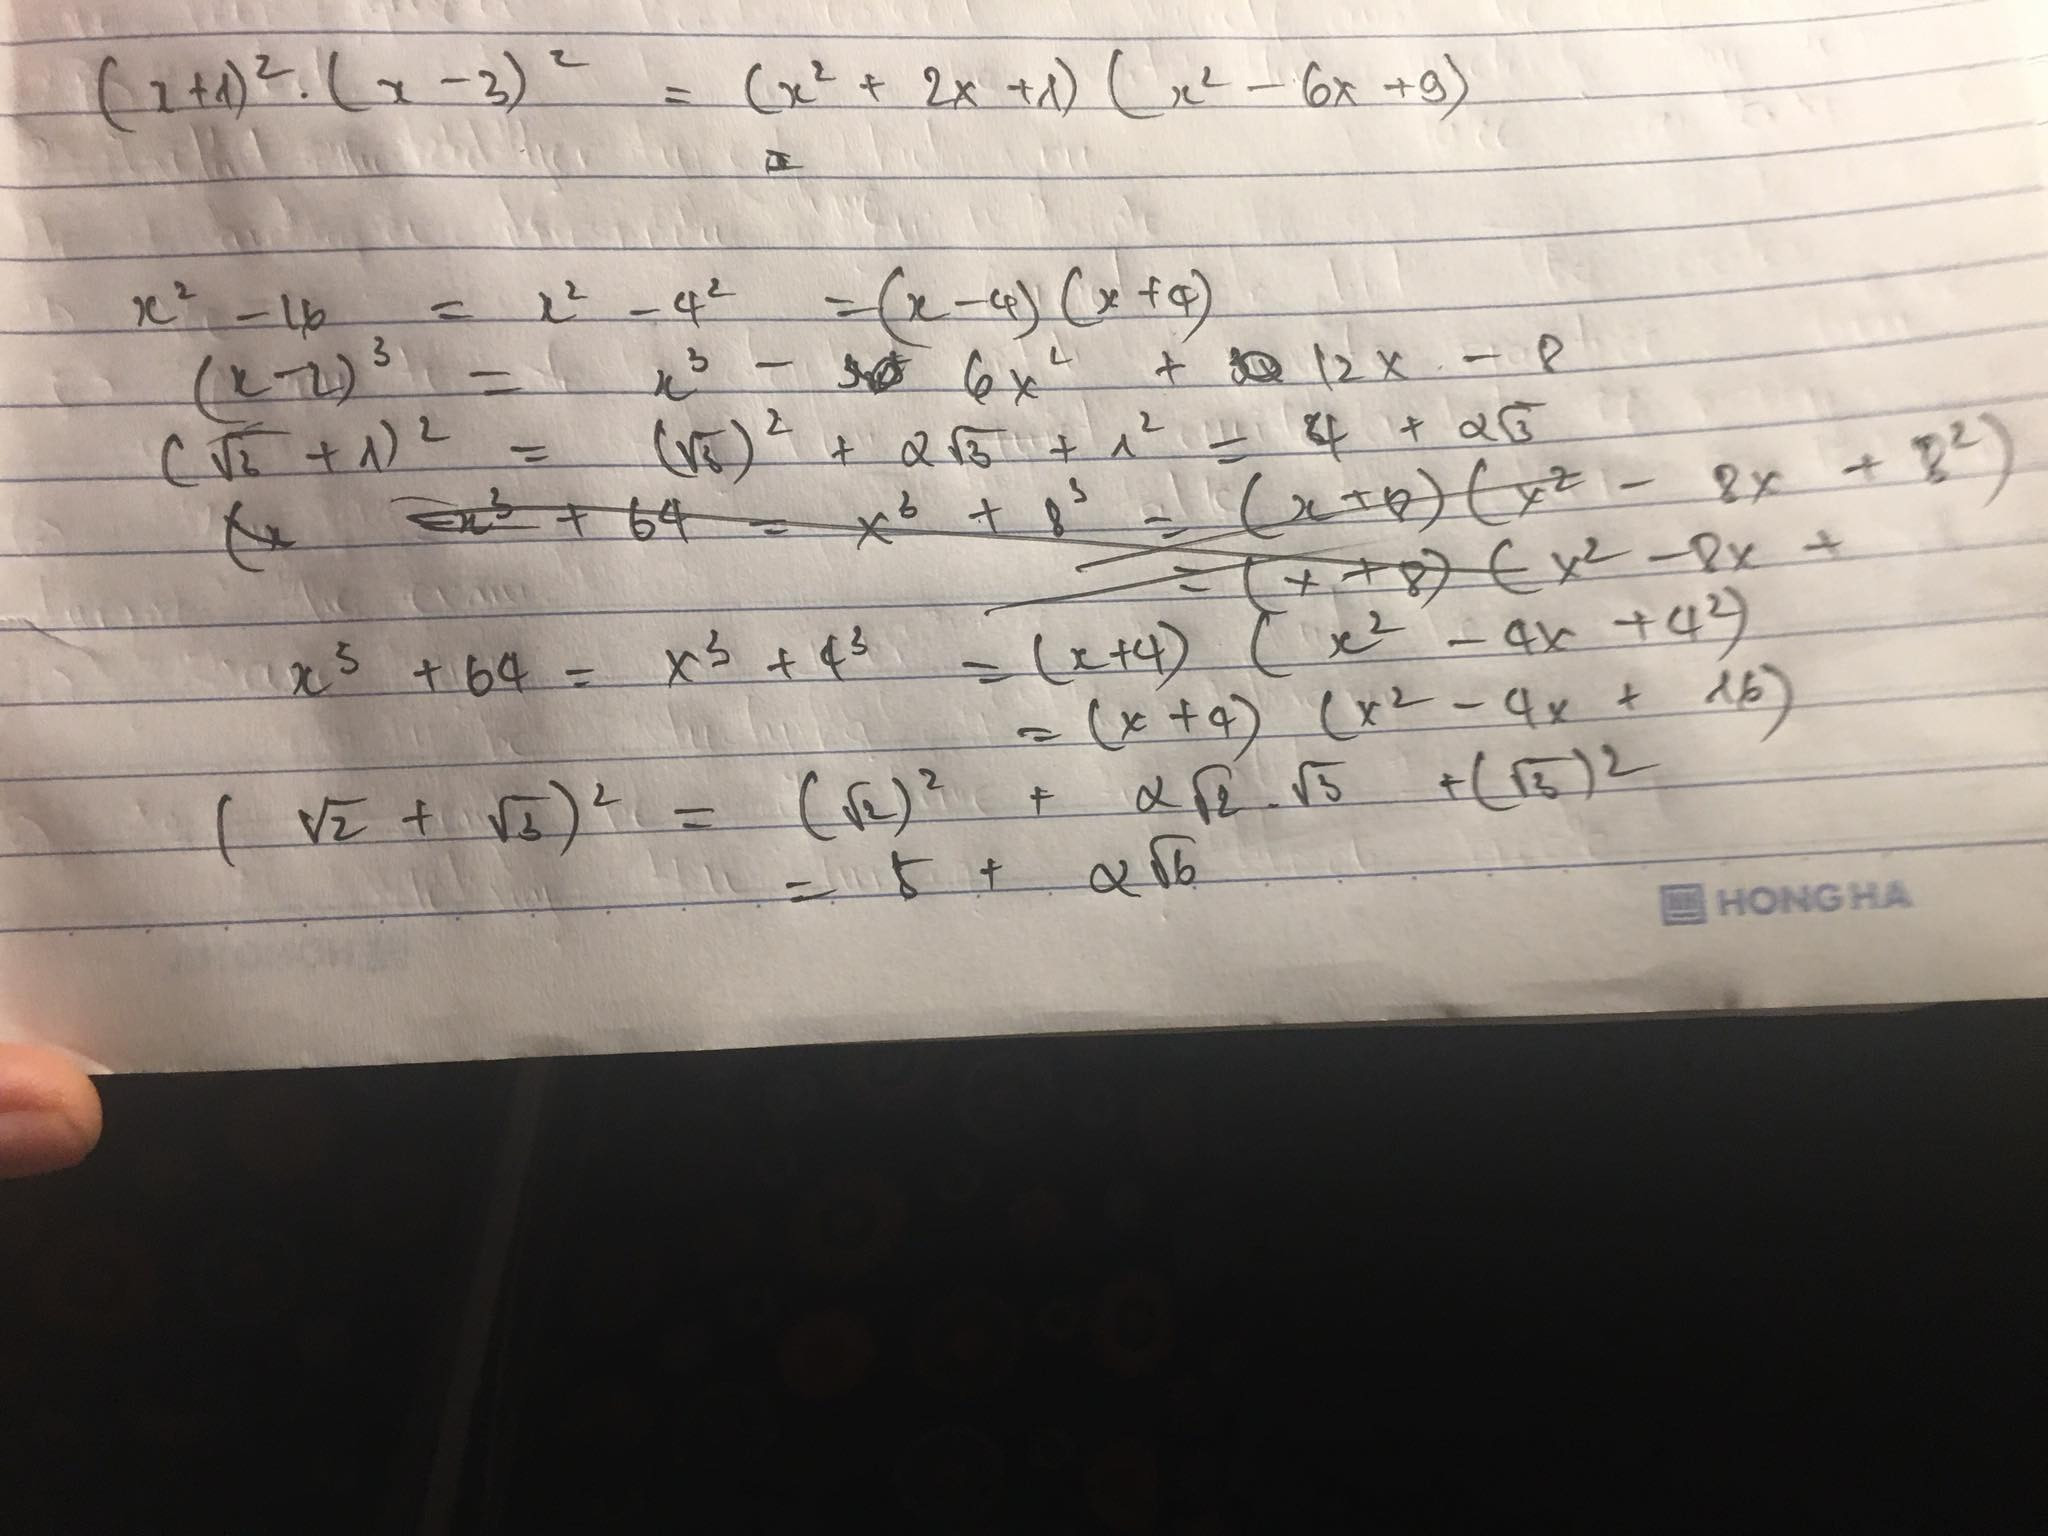 (x+1)² . (x - 3)² = (x² + 2x + 1) (x² - 6x + 9)
=
x² - 16 = x² - 4² = (x - 4) (x + 4)
(x - 2)³ = x³ - 6x² + 12x - 8
(√3 + 1)² = (√3)² + 2√3 + 1² = 4 + 2√3
(x x³ + 64 = x³ + 8³ = (x + 8) (x² - 8x + 8²)
= (x + 8) (x² - 8x +
x³ + 64 = x³ + 4³ = (x+4) (x² - 4x + 4²)
= (x + 4) (x² - 4x + 16)
(√2 + √3)² = (√2)² + 2√2 . √3 + (√3)²
= 5 + 2√6
HONG HA